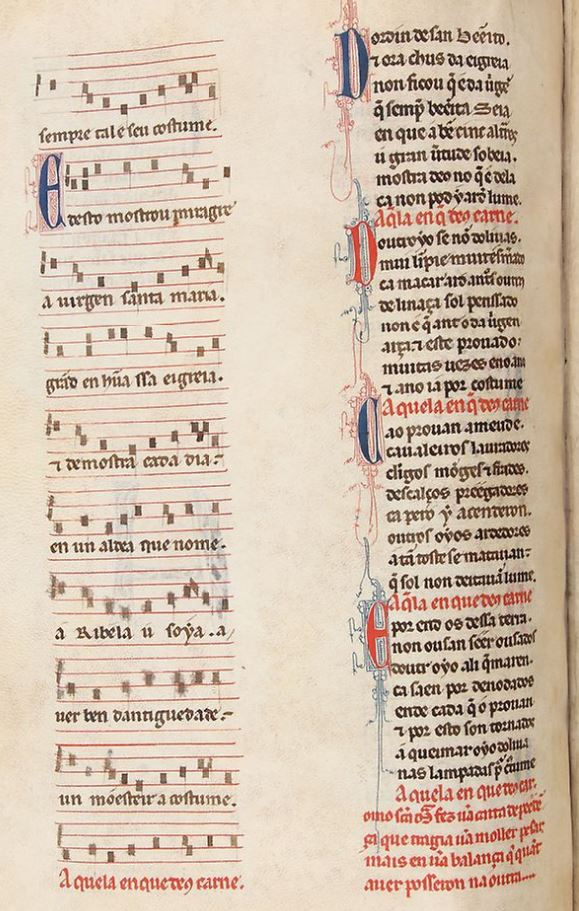 sempre tal e seu costume.
E desto mostrou miragre
a uirgen santa maria.
grãd en hũa ssa eigreia.
⁊ demostra cada dia:-
en un aldea que nome.
a Ribela u soýa . a/
uer ben dantiguedade:-
un móesteir a costume.
A quela en que deꝯ carne.
Dordin de san bẽeito.
⁊ ora chus da eigreia
non ficou q̃ é da uĩgẽ
q̃ semp̃ bẽeita seia
en que a bẽ cinc altares
u gran uertude sobeia.
mostra deꝯ no q̃ é dela
ca non pod ẏ ard lume.
A q̃la en q̃ deꝯ carne.
Doutr oyo se nõ doliuas.
mui linpi e
ca macar ard
de linaça sol penssado
non é q̃ ant o da uĩgen
arça ⁊ este prouado:
muitas uezes en o ano
⁊ ano ia por costume
A quela en q̃ deꝯ carne
Ca o prouan ameude.
caualeiros lauradores
cl̃igos mõges ⁊ frades.
descalços preegadores
ca pero ẏ acenderon.
outros oyos ardedores
ata toste se matauan:-
q̃ sol non deitauã lume.
A q̃la en que deꝯ carne
E por end os dessa terra.
non ousan séér ousados
doutr oyo ali q̃imaren.
ca saen por denodados
ende cada q̃ o prouan
⁊ por esto son tornados
a queimar oyo doliua
nas lampadas p̃ c̃tume
A quela en que deꝯ car.
como
ça que tragia ũa moller
mais en ũa balança q̃ quant
auer posseron na outra....